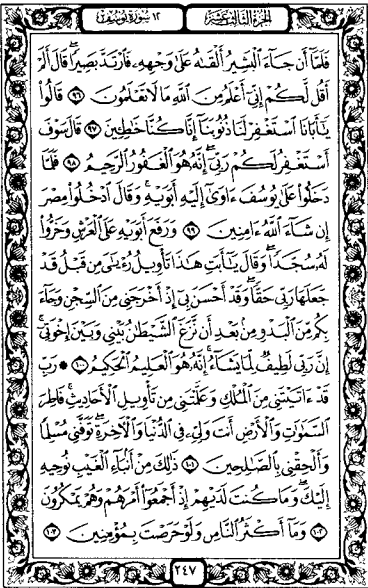 ١٢ سُورَةُ يُوسُفَ
الجُزْءُ الثَّالِثَ عَشَرَ
فَلَمَّآ أَن جَآءَ ٱلْبَشِيرُ أَلْقَىٰهُ عَلَىٰ وَجْهِهِۦ فَٱرْتَدَّ بَصِيرًاۖ قَالَ أَلَمْ
أَقُل لَّكُمْ إِنِّىٓ أَعْلَمُ مِنَ ٱللَّهِ مَا لَا تَعْلَمُونَ ٩٦ قَالُوا۟
يَٰٓأَبَانَا ٱسْتَغْفِرْ لَنَا ذُنُوبَنَآ إِنَّا كُنَّا خَٰطِـِٔينَ ٩٧ قَالَ سَوْفَ
أَسْتَغْفِرُ لَكُمْ رَبِّىٓۖ إِنَّهُۥ هُوَ ٱلْغَفُورُ ٱلرَّحِيمُ ٩٨ فَلَمَّا
دَخَلُوا۟ عَلَىٰ يُوسُفَ ءَاوَىٰٓ إِلَيْهِ أَبَوَيْهِ وَقَالَ ٱدْخُلُوا۟ مِصْرَ
إِن شَآءَ ٱللَّهُ ءَامِنِينَ ٩٩ وَرَفَعَ أَبَوَيْهِ عَلَى ٱلْعَرْشِ وَخَرُّوا۟
لَهُۥ سُجَّدًاۖ وَقَالَ يَٰٓأَبَتِ هَٰذَا تَأْوِيلُ رُءْيَٰىَ مِن قَبْلُ قَدْ
جَعَلَهَا رَبِّى حَقًّاۖ وَقَدْ أَحْسَنَ بِىٓ إِذْ أَخْرَجَنِى مِنَ ٱلسِّجْنِ وَجَآءَ
بِكُم مِّنَ ٱلْبَدْوِ مِنۢ بَعْدِ أَن نَّزَغَ ٱلشَّيْطَٰنُ بَيْنِى وَبَيْنَ إِخْوَتِىٓۚ
إِنَّ رَبِّى لَطِيفٌ لِّمَا يَشَآءُۚ إِنَّهُۥ هُوَ ٱلْعَلِيمُ ٱلْحَكِيمُ ١٠٠ ۞ رَبِّ
قَدْ ءَاتَيْتَنِى مِنَ ٱلْمُلْكِ وَعَلَّمْتَنِى مِن تَأْوِيلِ ٱلْأَحَادِيثِۚ فَاطِرَ
ٱلسَّمَٰوَٰتِ وَٱلْأَرْضِ أَنتَ وَلِىِّۦ فِى ٱلدُّنْيَا وَٱلْءَاخِرَةِۖ تَوَفَّنِى مُسْلِمًا
وَأَلْحِقْنِى بِٱلصَّٰلِحِينَ ١٠١ ذَٰلِكَ مِنْ أَنۢبَآءِ ٱلْغَيْبِ نُوحِيهِ
إِلَيْكَۖ وَمَا كُنتَ لَدَيْهِمْ إِذْ أَجْمَعُوٓا۟ أَمْرَهُمْ وَهُمْ يَمْكُرُونَ
١٠٢ وَمَآ أَكْثَرُ ٱلنَّاسِ وَلَوْ حَرَصْتَ بِمُؤْمِنِينَ ١٠٣
٢٤٧